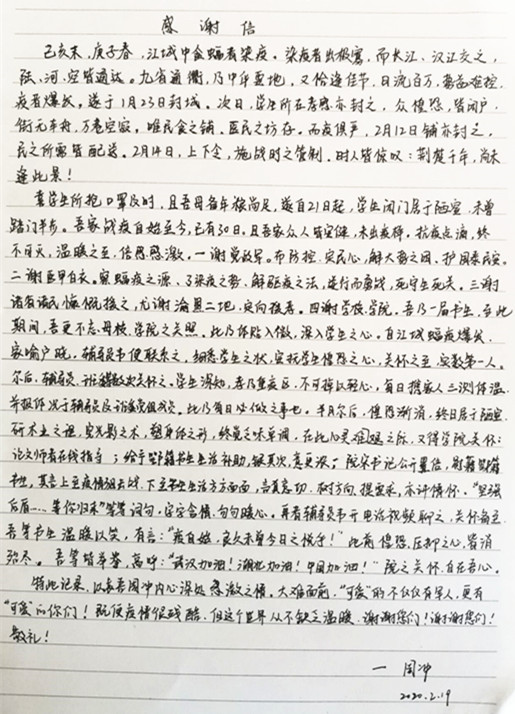 感谢信
己亥末，庚子春，江城中食蝠者染疫。染疫者出救寓，而长江、汉江交之，
陆、河、空皆通达。九省通衢，乃中华要地，又恰逢佳节，日流百万，
疫者爆状。遂于1月23日封城。次日，学生所在孝感亦封之，众惶恐，皆闭户，
街无车舟，万巷空寂，唯民食之铺、医民之坊存。而疫俱严，2月12日铺亦封之，
民之所需皆配送。2月14日，上下令，施战时之管制。时人皆惊叹：荆楚千年，尚未
逢此景！
幸学生所抢口罩及时，且吾母备年猴尚足，遂自21日起，学生闭门居于陋室，未曾
踏门半步。吾家战疫自始至今，已有30日，且吾家众人皆安健，未出疫碍。抗疫点滴，终
不可灭，温暖之至，倍感感激。一谢党政军。布防控，安民心，解大势之困，护国泰民安。
二谢医甲白衣。察蝠疫之源、了染疫之势、解驱疫之法，逆行而鏖战，死守生死关。三谢
诸省诸民慷慨援之，尤谢渝黑二地，定向援孝。四谢学校、学院。吾乃一届书生，至此
期间，吾更不忘母校、学院之关照。此乃体贴入微，深入学生之心。自江城蝠疫爆状，
家喻户晓，辅导员韦便联系之，细悉学生之状，安抚学生惶恐之心，关怀之至，实数第一人。
尔后，辅导员、数次关怀之。学生深知，孝乃重疫区，不可掉以轻心，每日携家人三测体温，
并报体况于辅导员及党组成员。此乃每日必做之事也。半月尔后，惶恐渐消，终日居于陋室，
研术业之课，赏光影之术，塑身体之形，终觉乏味单调，在此心灵难题之际，又得学院关怀：
论文师者在线指导；给予鄂籍书生生活补助，银其次，意更深；院宋书记公开置信，慰藉鄂籍
书生，其言上至疫情狙击战，下至书生生活方方面面，言真意切，树方向，提要求，亦详情怀。“坚强
后盾……等你归来”等等词句，字字含情，句句暖心。再看辅导员韦开电话视频聊之，关怀备至，
吾等书生温暖以笑。有言：“疫自始，良久未曾今日之悦乎！”此前惶恐、压抑之心，皆消
弥尽。吾等皆举拳，高呼：“武汉加油！湖北加油！中国加油！”院之关怀，自在吾心。
特此记录，以表吾周冲内心深处感激之情。大难面前，“可爱”的不仅仅有军人，更有
“可爱”的你们！既便疫情很残酷，但这个世界从不缺乏温暖。谢谢您们！谢谢您们！
敬礼！
一 周冲
2020.2.19